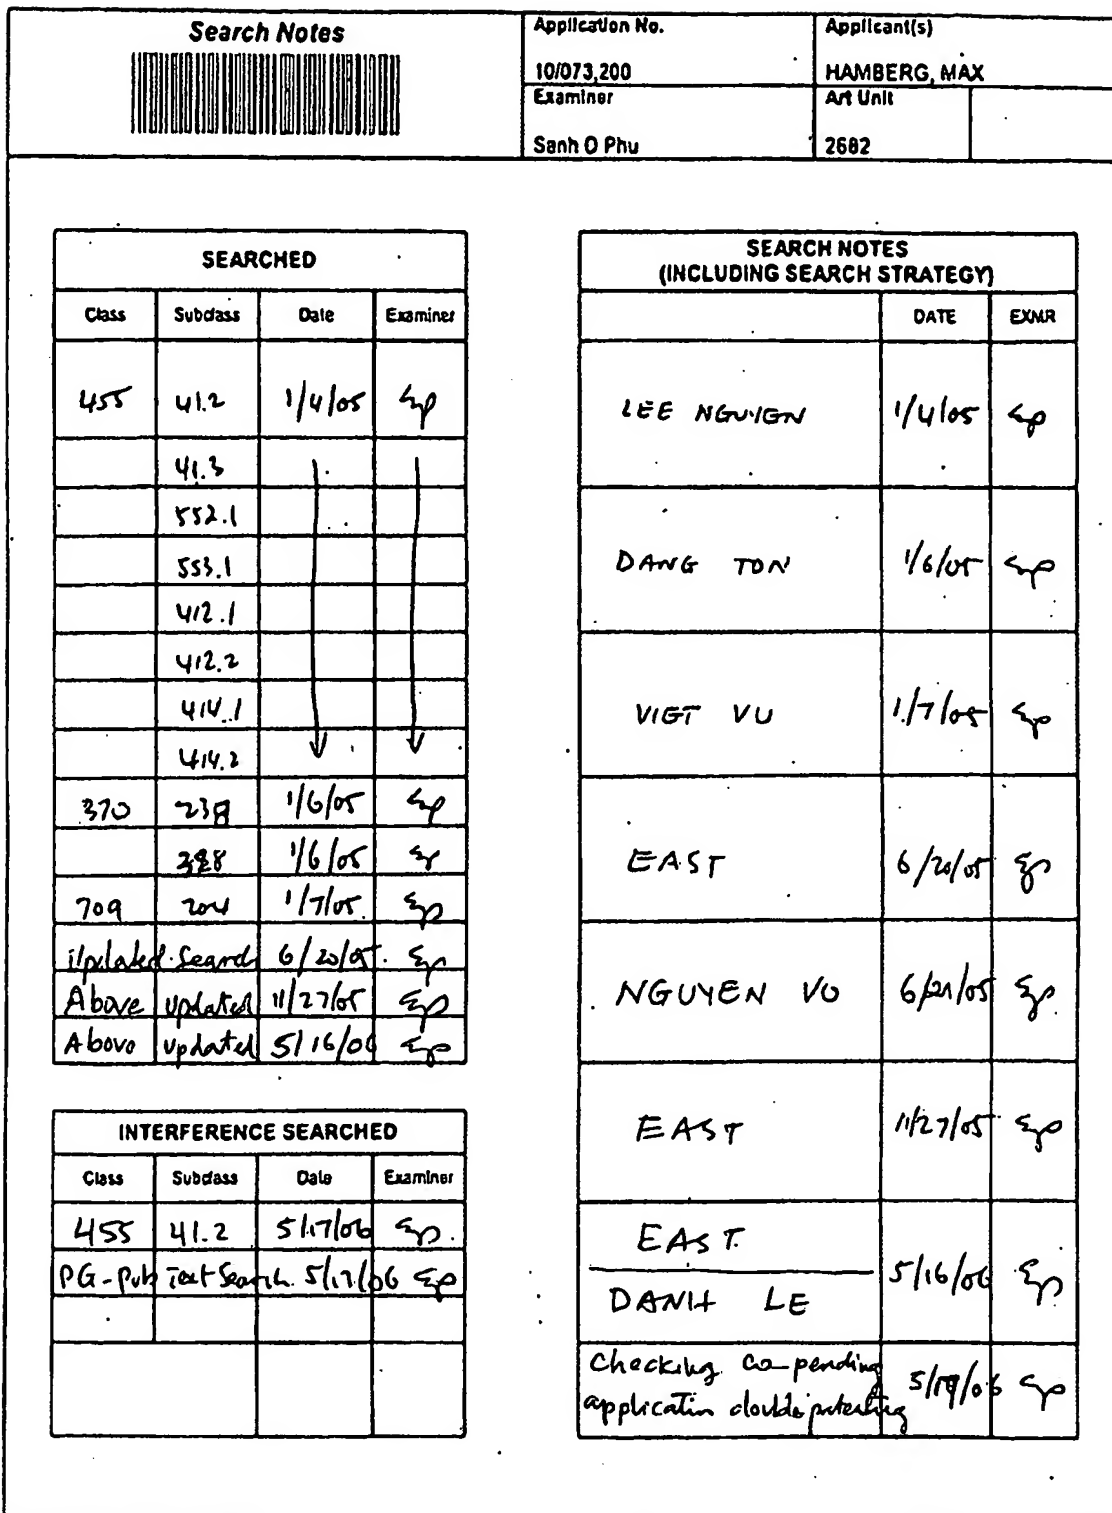 Search Notes
Application No.
Applicant(s)
10/073,200
HAMBERG, MAX
Examiner
Art Unit
Sanh D Phu
2682
SEARCHED
Class Subclass Date Examiner
455 41.2 1/4/05 SP
41.3
552.1
553.1
412.1
412.2
414.1
414.2
370 1/6/05 SP
1/6/05 SP
709 204 1/7/05 SP
Updated Search 6/20/05 SP
Above updated 11/27/05 SP
Above updated 5/16/06 SP
INTERFERENCE SEARCHED
Class Subclass Date Examiner
455 41.2 5/17/06 SP
PG-Pub Text Search 5/17/06 SP
SEARCH NOTES
(INCLUDING SEARCH STRATEGY)
DATE EXMR
LEE NGUYEN 1/4/05 SP
DANG TON 1/6/05 SP
VIET VU 1/7/05 SP
EAST 6/20/05 SP
NGUYEN VO 6/21/05 SP
EAST 11/27/05 SP
EAST
DANH LE 5/16/06 SP
Checking co-pending
application double patenting SP